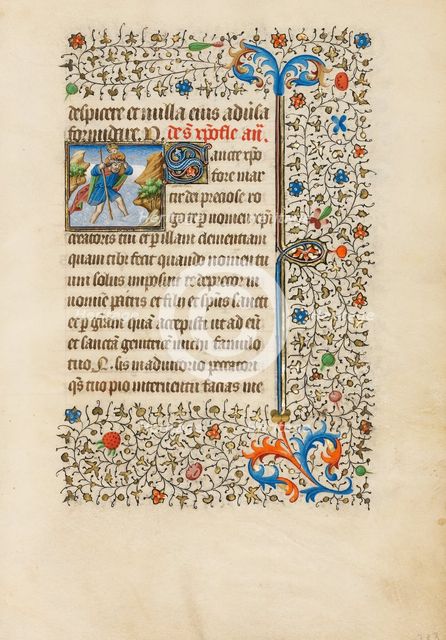 despicere et nulla eius aduersa
formidare. P. De s. xpofle an.
Sancte xpo
fore mar
tir dei preciose ro
go te p nomen xpi
creatoris tui et p illam clementiam
quam tibi fecit quando nomen su
um solus imposuit te deprecor in
nomine patris et filii et spus sancti
et p gram qua accepisti ut ad eu
et sancta genitrice michi famulo
tuo N. sis in adiutorio peccatori
qs tuo pio interuentu facias me